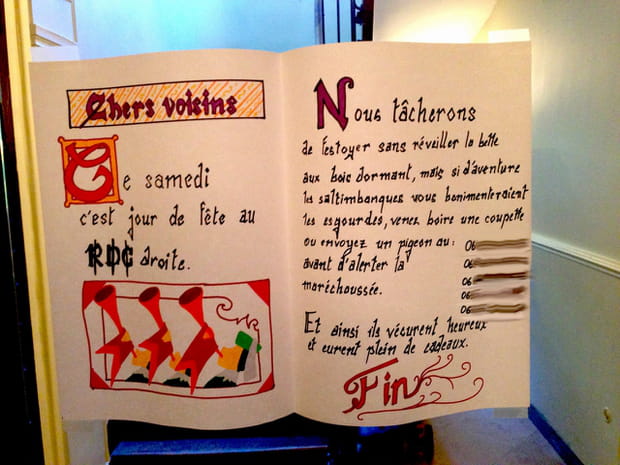 Chers voisins
Ce samedi
c'est jour de fête au
RDC droite.
Nous tâcherons
de festoyer sans réveiller la bette
aux bois dormant, mais si d'aventure
les saltimbanques vous bonimenteraient
les esgourdes, venez boire une coupette
ou envoyez un pigeon au : 06
avant d'alerter la 06
maréchaussée. 06
06
06
Et ainsi ils vécurent heureux
et eurent plein de cadeaux.
Fin